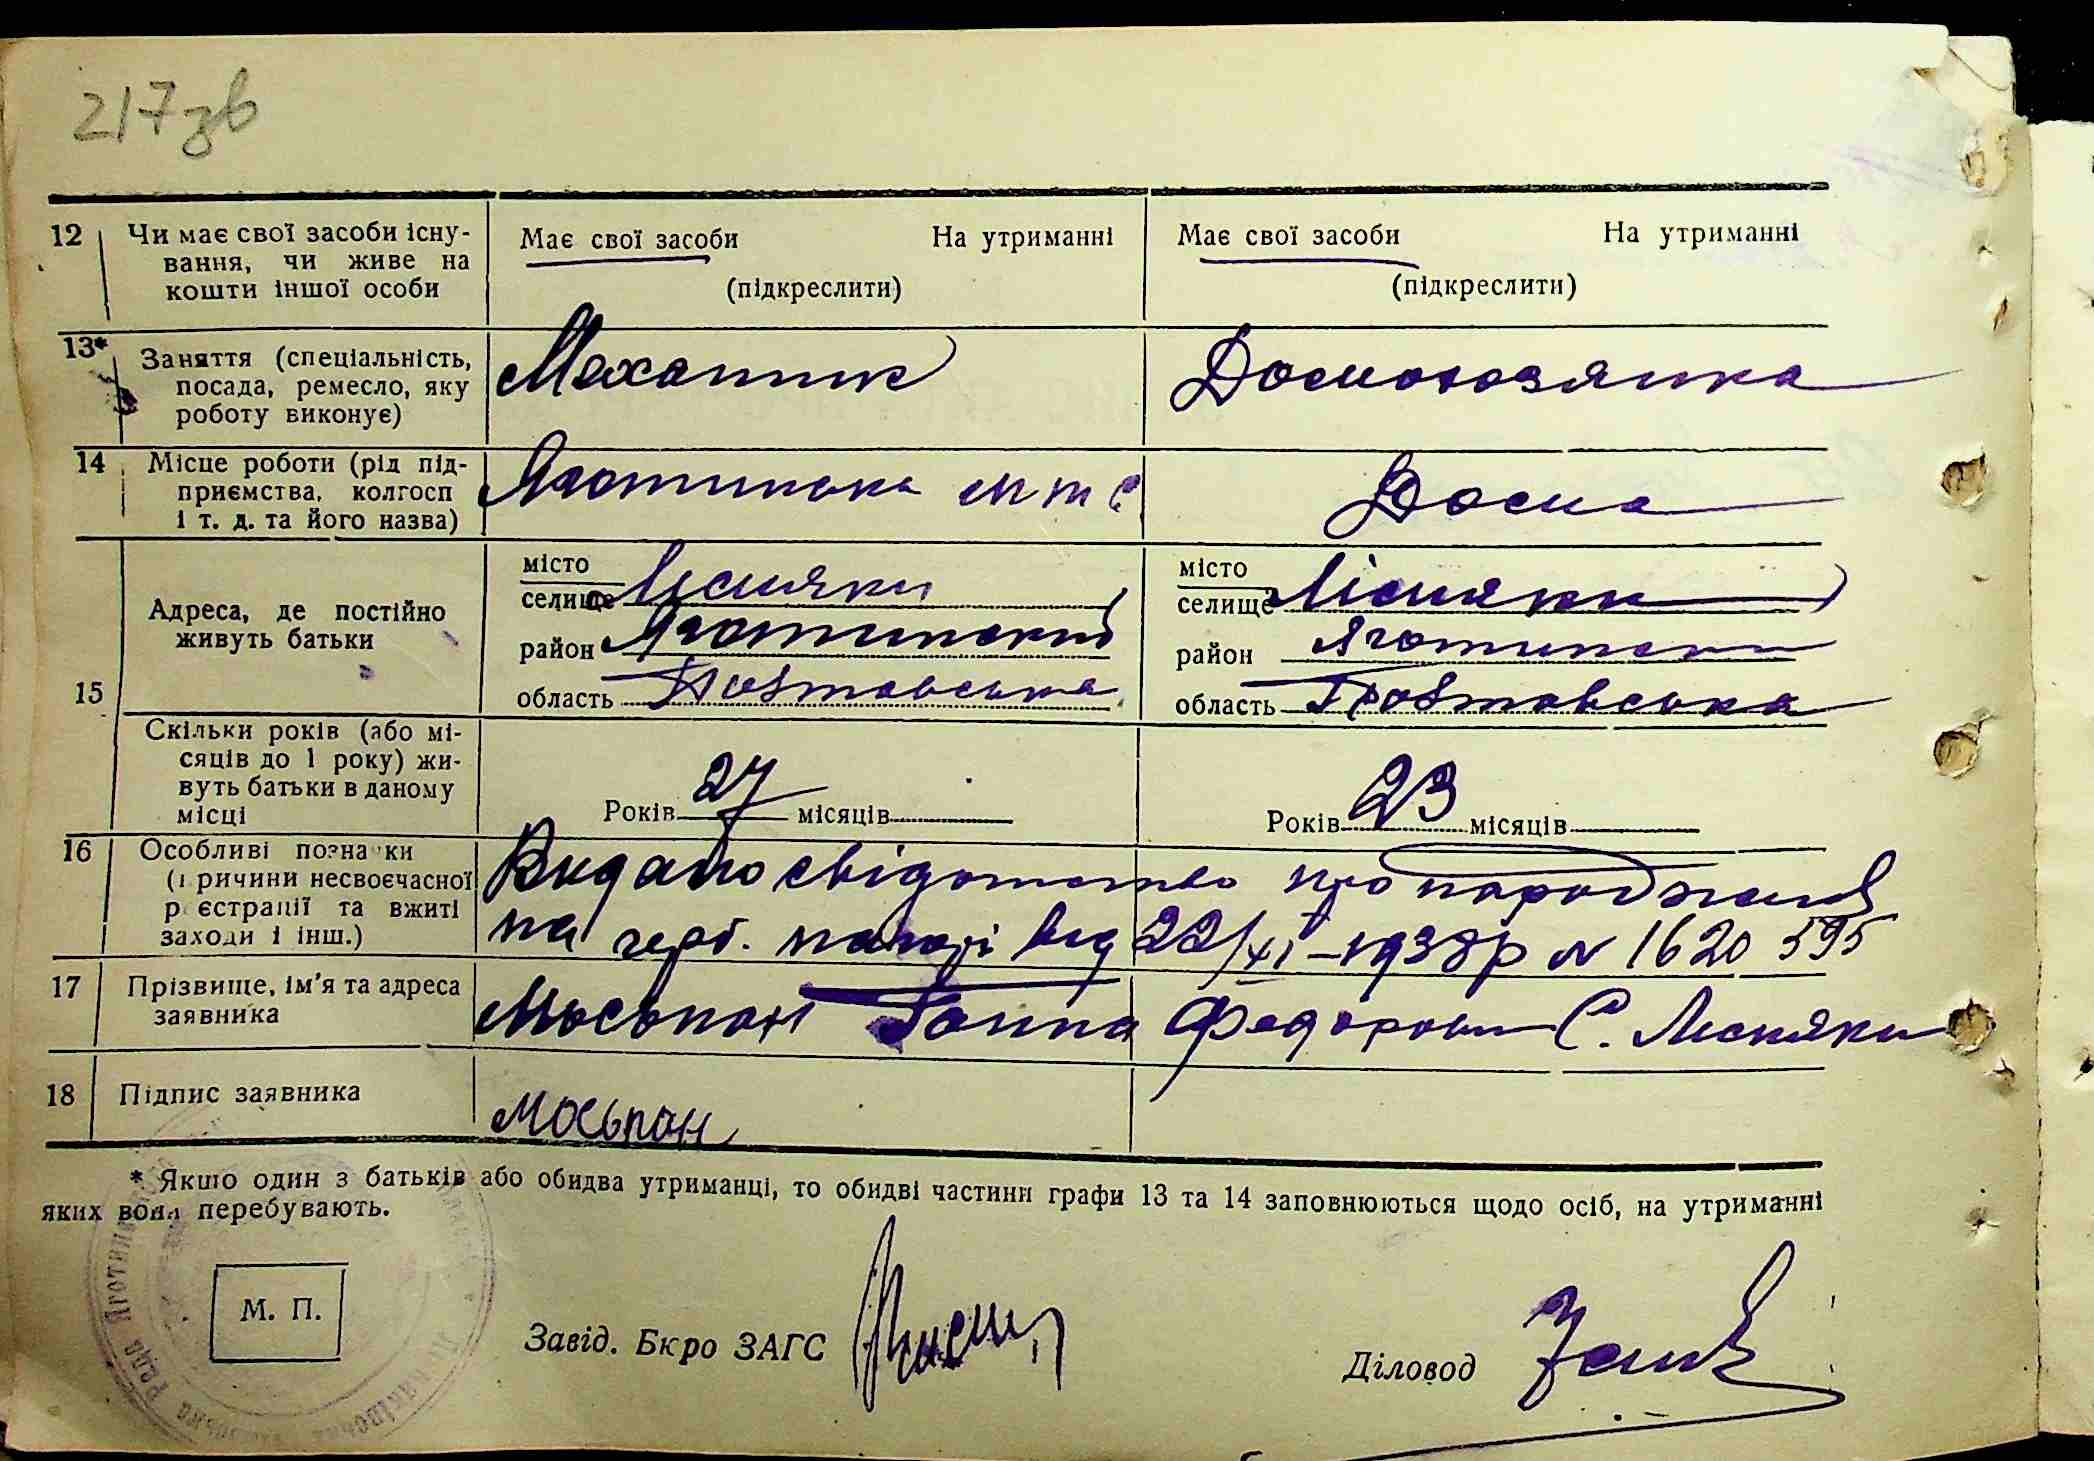 217зв
12 Чи має свої засоби існу-
вання, чи живе на
кошти іншої особи
Має свої засоби На утриманні
(підкреслити)
Має свої засоби На утриманні
(підкреслити)
13* Заняття (спеціальність,
посада, ремесло, яку
роботу виконує)
Механик
Домохозяика
14 Місце роботи (рід під-
приємства, колгосп
і т. д. та його назва)
Яготинська мтс
Дома
15
Адреса, де постійно
живуть батьки
місто
селище Лісняки
район Яготинский
область Полтавська
місто
селище Лісняки
район Яготински
область Полтавська
Скільки років (або мі-
сяців до 1 року) жи-
вуть батьки в даному
місці
Років 27 місяців
Років 23 місяців
16 Особливі позначки
(причини несвоєчасної
реєстрації та вжиті
заходи і інш.)
Видано свідотство про народженя
на герб. папері від 22/XI-1938р № 1620 595
17 Прізвище, ім'я та адреса
заявника
Моськан Ганна Федоровн С. Лисняки
18 Підпис заявника
Моськан
* Якшо один з батьків або обидва утриманці, то обидві частини графи 13 та 14 заповнюються щодо осіб, на утриманні
яких вони перебувають.
М. П.
Завід. Бюро ЗАГС
Діловод